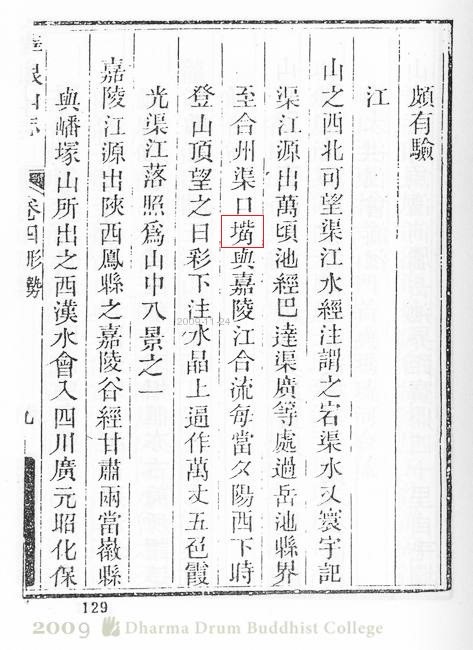 頗有驗
江
山之西北可望渠江水經注謂之宕渠水又寰宇記
渠江源出萬頃池經巴達渠廣等處過岳池縣界
至合州渠口嘴與嘉陵江合流每當夕陽西下時
登山頂望之日彩下注水晶上逼作萬丈五色霞
光渠江落照爲山中八景之一
嘉陵江源出陝西鳳縣之嘉陵谷經甘肅兩當徽縣
與嶓冢山所出之西漢水會入四川廣元昭化保
山志 卷四形勢 九
2009-11-24
129
2009 Dharma Drum Buddhist College